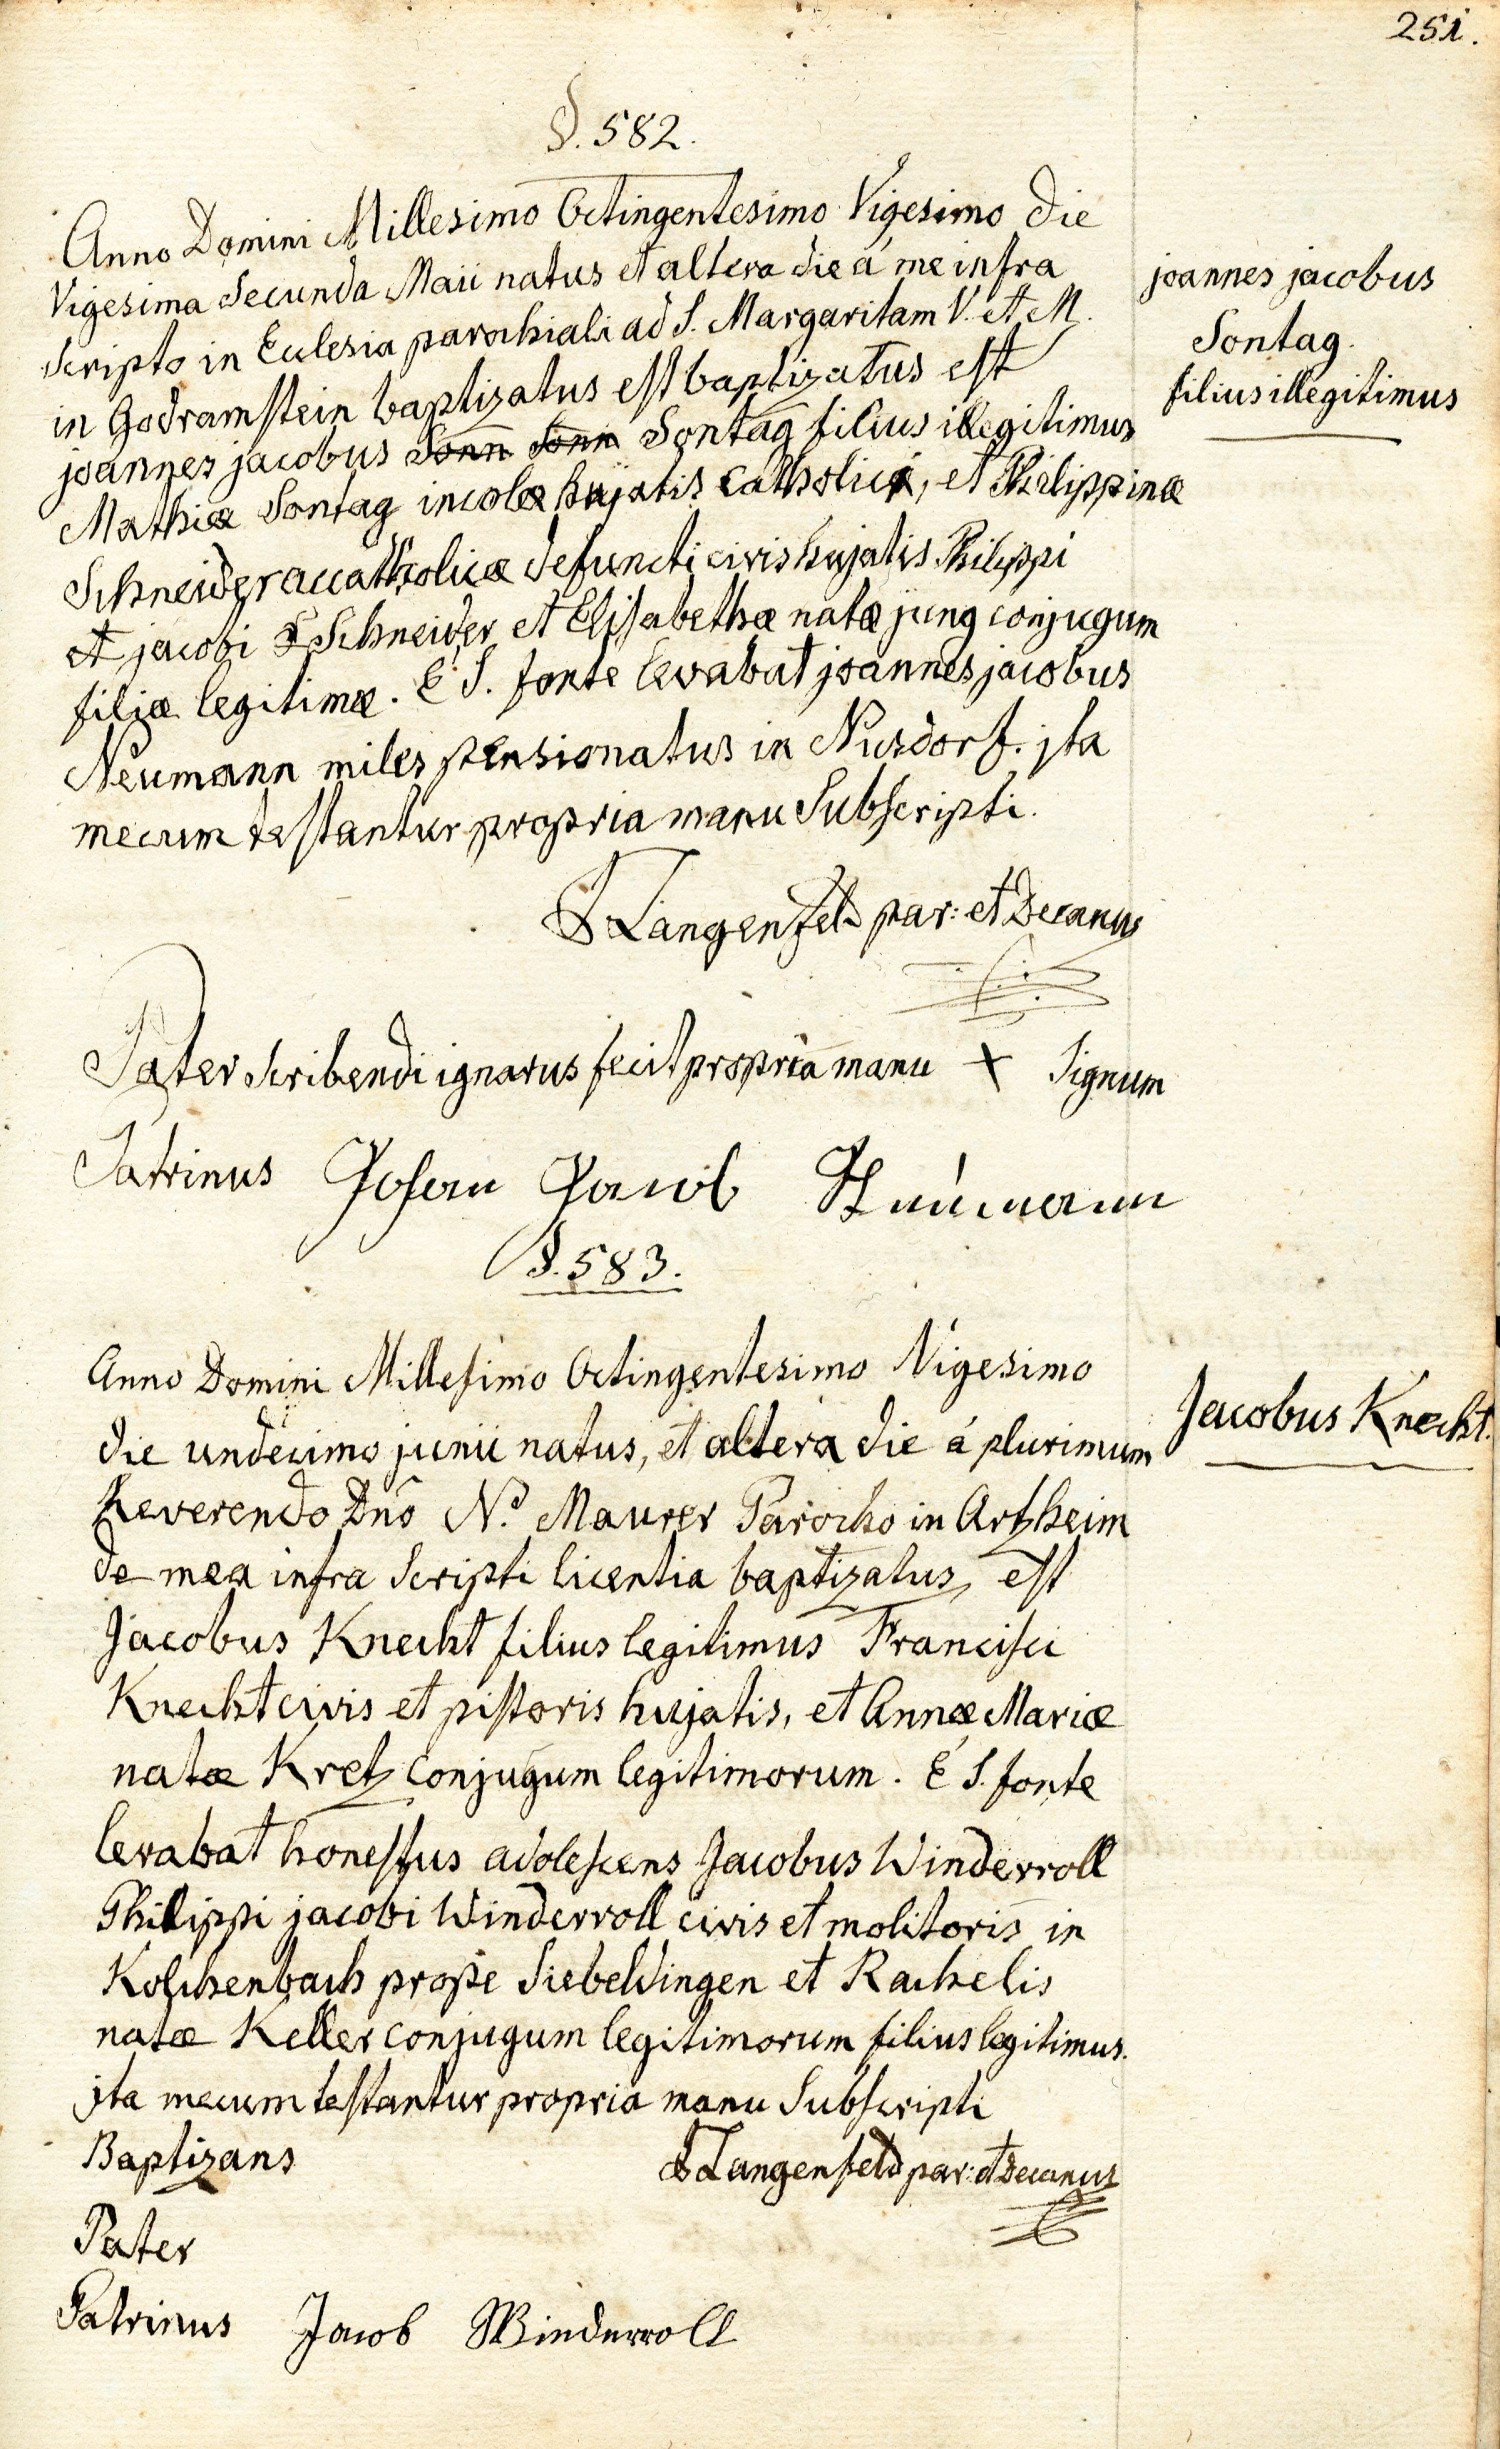 251.
§. 582.
Anno Domini Millesimo Octingentesimo Vigesimo die
Vigesima Secunda Maii natus et altera die á me infra
scripto in Ecclesia parochiali ad S. Margaritam V. et M.
in Godramstein baptizatus est baptizatus est
joannes jacobus Sonn Sonn Sontag filius illegitimus
Mathiæ Sontag incolæ hujatis catholici, et Philippinæ
Schneider accatholicæ defuncti civis hujatis Philippi
et jacobi S Schneider et Elisabethæ natæ jung conjugum
filiæ legitimæ. E S. fonte levabat joannes jacobus
Neumann miles pensionatus in Nusdorf. jta
mecum testantur propria manu Subscripti.
joannes jacobus
Sontag.
filius illegitimus
Langenfeld par: et Decanus
Pater scribendi ignarus fecit propria manu + Signum
Patrinus Johan Jacob Neümann
§. 583.
Anno Domini Millesimo Octingentesimo Vigesimo
die undecimo junii natus, et altera die á plurimum
Reverendo Dnō N. Maurer Parocho in Artzheim
de mea infra Scripti licentia baptizatus est
Jacobus Knecht filius legitimus Francisci
Knecht civis et pistoris hujatis, et Annæ Mariæ
natæ Kretz conjugum legitimorum. E S. fonte
levabat honestus adolescens Jacobus Winderroll
Philippi jacobi Winderroll civis et molitoris in
Kolschenbach prope Siebeldingen et Rachelis
natæ Keller conjugum legitimorum filius legitimus.
jta mecum testantur propria manu Subscripti
Jacobus Knecht.
Baptizans
Langenfeld par: et Decanus
Pater
Patrinus Jacob Winderroll